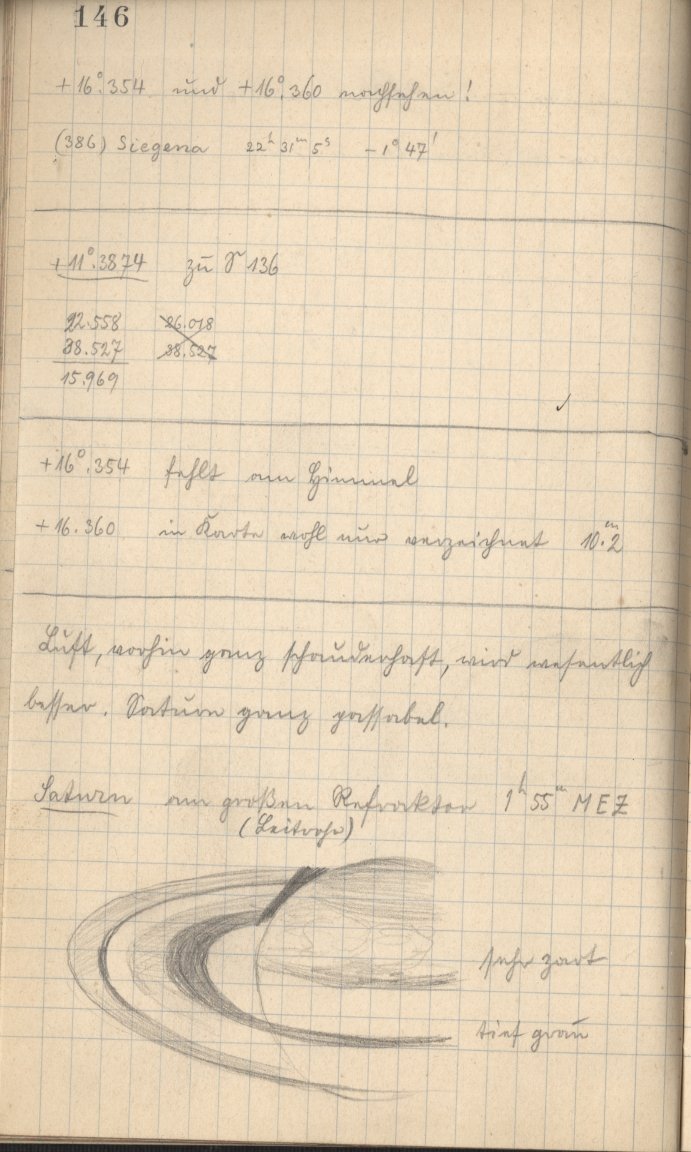 146
+16°.354 und +16°.360 nachsehen!
(386) Siegena 22ʰ 31ᵐ 5ˢ −1° 47'
+11°.3874 zu S 136
22.558 26.018
38.527 38.527
15.969
+16°.354 fehlt am Himmel
+16.360 in Karte wohl nur verzeichnet 10.ᵐ2
Luft, vorhin ganz schauderhaft, wird wesentlich
besser. Saturn ganz passabel.
Saturn am großen Refraktor 1ʰ 55ᵐ MEZ
(Leitrohr)
sehr zart
tief grau